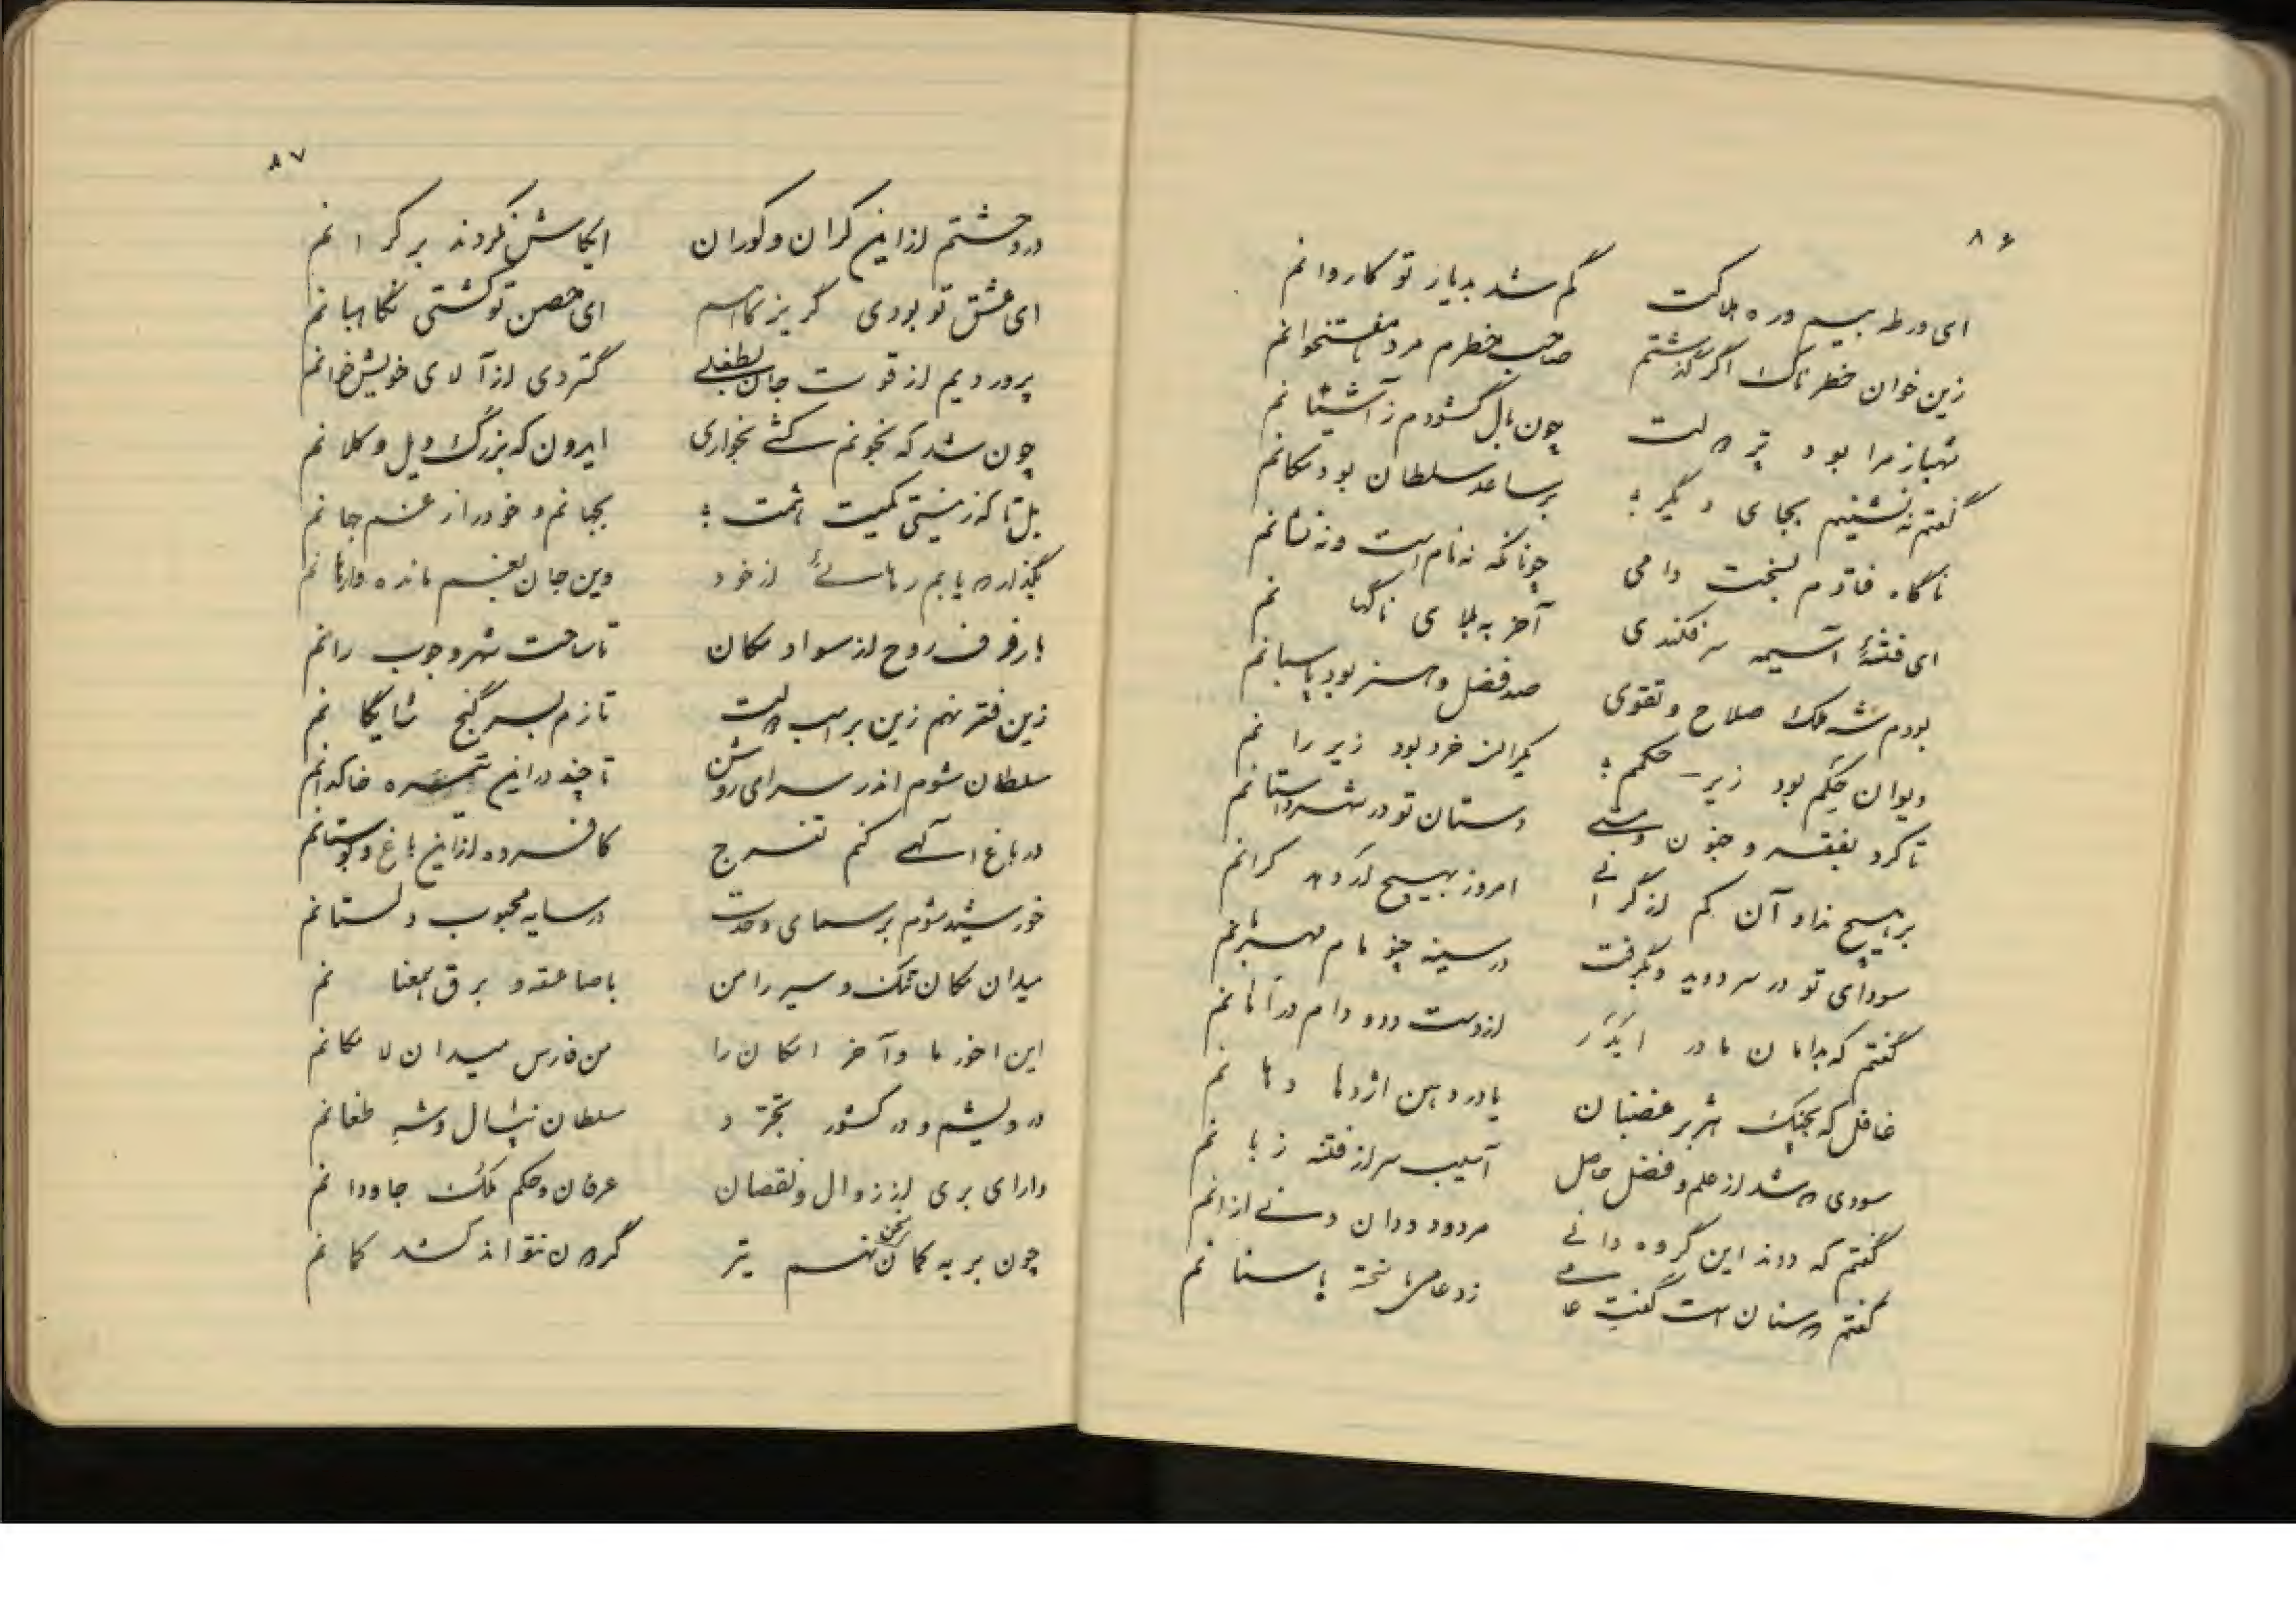 ۸۶
ای ورطه بیم و ره هلاکت گم شد بدیار تو کاروانم
زین خوان خطرناک اگر گذشتم صاحب خطرم مرد هفتخوانم
شهباز مرا بود پر دولت چون بال گشودم ز آشیانم
گفتم ننشینم بجای دیگر؛ بر ساعد سلطان بود مکانم
ناگاه فتادم بسخت دامی چونانکه نه نام است و نه نشانم
ای فتنهٔ آسیمه سر فکندی آخر به بلای ناگهانم
بودم شه ملک صلاح و تقوی صد فضل و هنر بود پاسبانم
دیوان حکم بود زیر حکمم؛ یکران خرد بود زیر رانم
تا کرد بفقه و جنون دستان تو در شهر داستانم
بر هیچ نداد آن کم از گرانی امروز بهیچ گرانم
سودای تو در سر دوید و بگرفت در سینه چو مام مهربانم
گفتم که بدامان مادر ایدر از دست دد و دام در امانم
غافل که بچنگ هژبر غضبان یا در دهن اژدها دمانم
سودی نشد از علم و فضل حاصل آسیب سر از فتنه زبانم
گفتم که دوند این گروه دانی مردود ددان دنی از آنم
گفتم سنان است گفت زد باستانم
۸۷
در وحشتم از این کران و کوران ایکاش نکردند بر کرانم
ای عشق تو بودی گریزگاهم ای حصن تو گشتی نگاهبانم
پروردیم از قوت جان بطفلی گستردی از آلای خویش خوانم
چون شد که بخونم کشی بخواری ایدون که بزرگ و یل و کلانم
بل تا که ز نیستی کمیت همت؛ بجهانم و خود را ز غم جهانم
بگذار که یابم رهائی از خود وین جان بغم مانده وارهانم
با رفرف روح از سواد مکان تا ساحت شهر وجوب رانم
زین فقر نهم زین بر اسب دولت تازم بسر گنج شایگانم
سلطان شوم اندر سرای روشن تا چند در این تیره خاکدانم
در باغ آلهی کنم تفرج کافسرده از این باغ و بوستانم
خورشید شوم بر سمای وحدت در سایه محبوب دلستانم
میدان مکان تنگ و سیر را من با صاعقه و برق همعنانم
این اخور ما و آخر امکان را من فارس میدان لا مکانم
درویشم و در کشور تجرد سلطان نیال و شه طغانم
دارای بری از زوال و نقصان عرفان و حکم ملک جاودانم
چون بر به کمان سخن نهم تیر گردون نتواند کشد کمانم